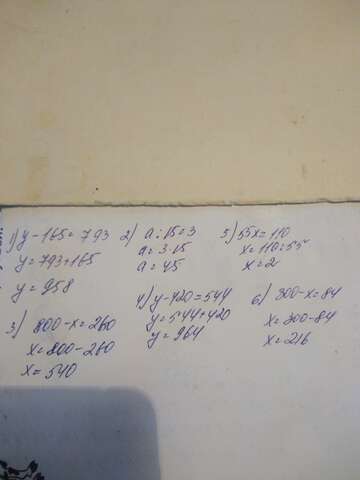 1) y-165=793
y=793+165
y=958
2) a:15=3
a=3·15
a=45
5) 55x=110
x=110:55
x=2
3) 800-x=260
x=800-260
x=540
4) y-420=544
y=544+420
y=964
6) 300-x=84
x=300-84
x=216